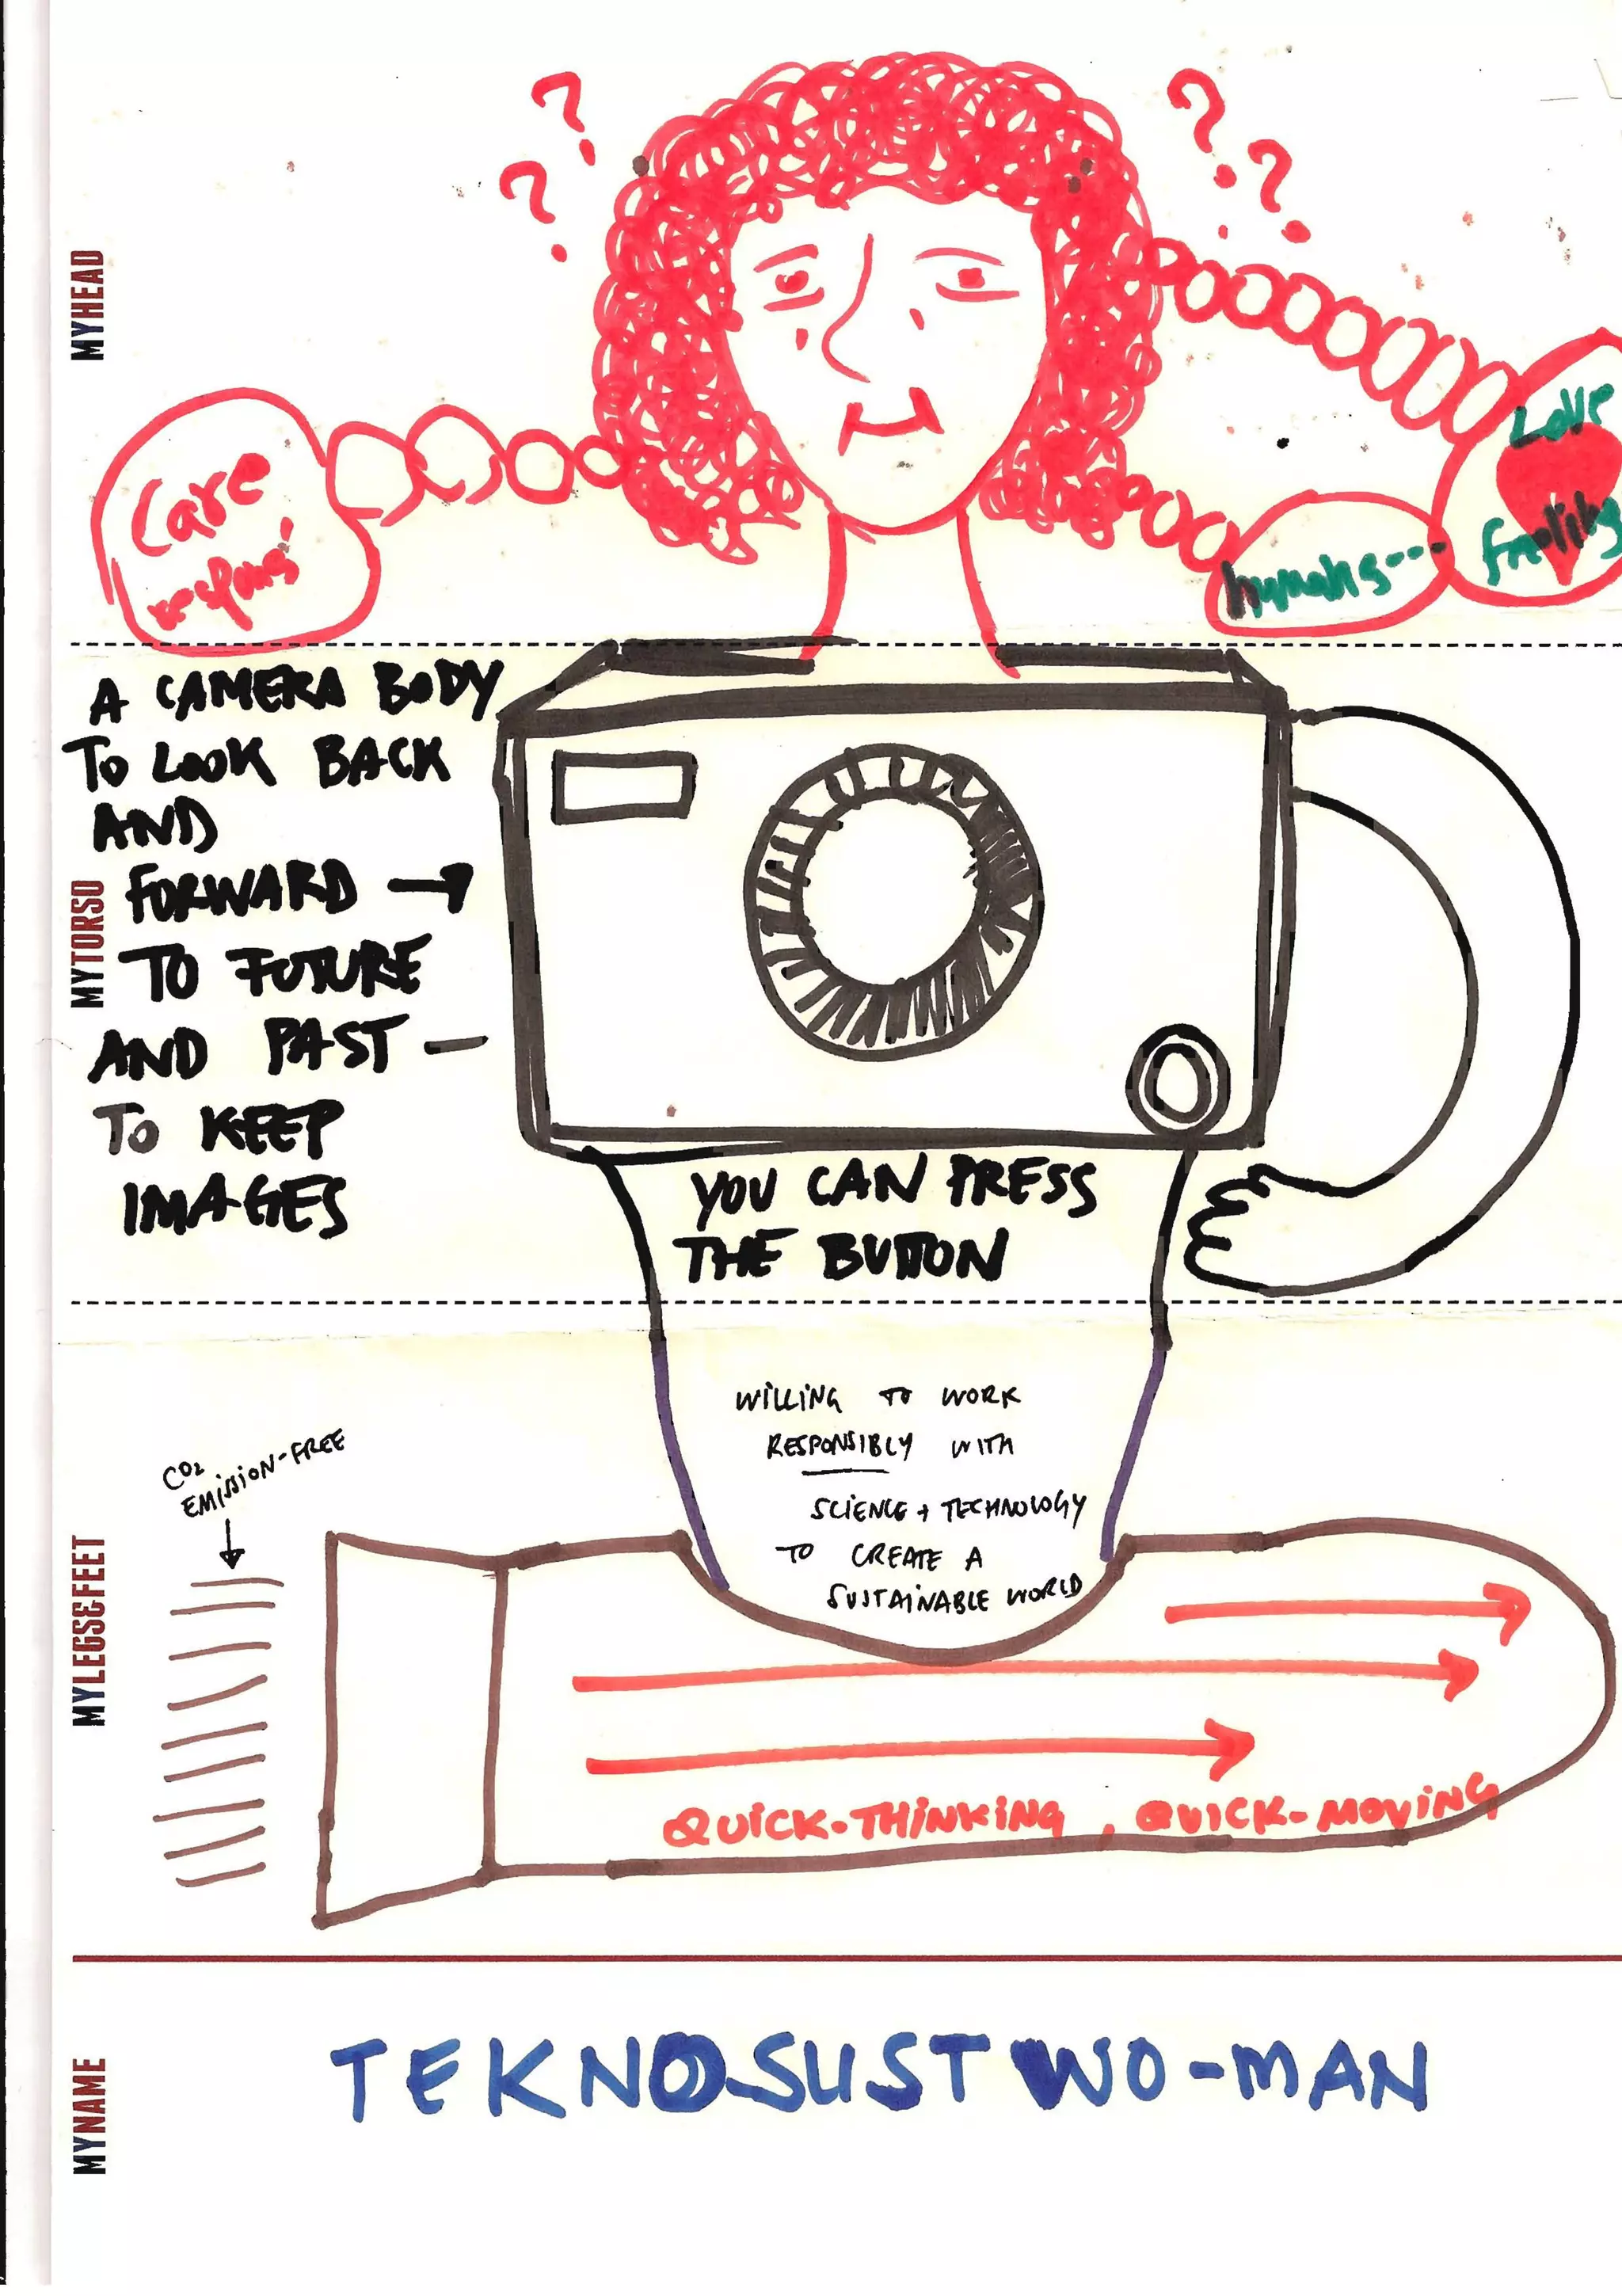 MYHEAD
? ? ? ?
Care
respons!
Love
feeling
humans---
MYTORSO
A CAMERA BODY
TO LOOK BACK
AND
FORWARD →
TO FUTURE
AND PAST —
TO KEEP
IMAGES
YOU CAN PRESS
THE BUTTON
MYLEGS&FEET
CO2
EMISSION-FREE
WILLING TO WORK
RESPONSIBLY WITH
SCIENCE + TECHNOLOGY
TO CREATE A
SUSTAINABLE WORLD
QUICK-THINKING, QUICK-MOVING
MYNAME
TEKNOSUSTWO-MAN